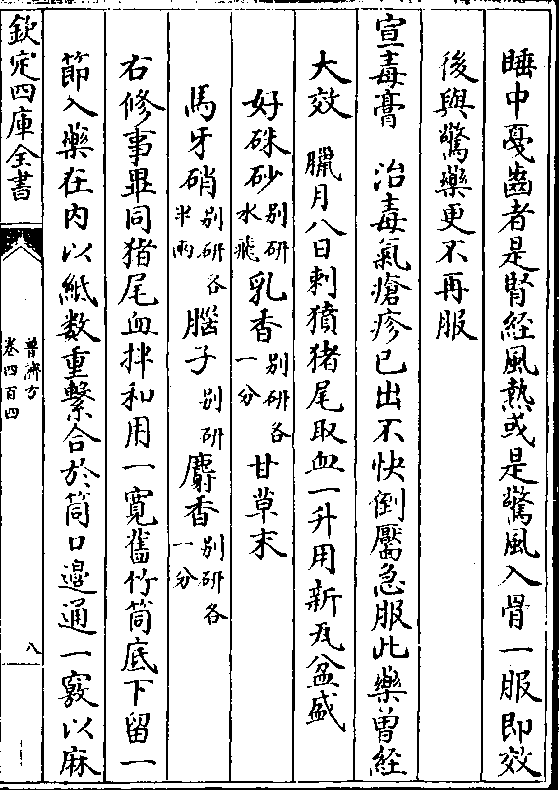 睡中戞齒者是腎經風熱或是驚風入骨一服即效
後與驚藥更不再服
宣毒膏　治毒氣瘡疹已出不快倒黶急服此藥曾經
大效　臘月八日刺豶猪尾取血一升用新瓦盆盛
好硃砂别研水飛　乳香别研各一分　甘草末
馬牙硝别研各半兩　腦子别研　麝香别研各一分
右修事畢同猪尾血拌和用一寛舊竹筒底下留一
節入藥在内以紙数重繫合於筒口邉通一竅以麻
欽定四庫全書
普濟方
卷四百四
八